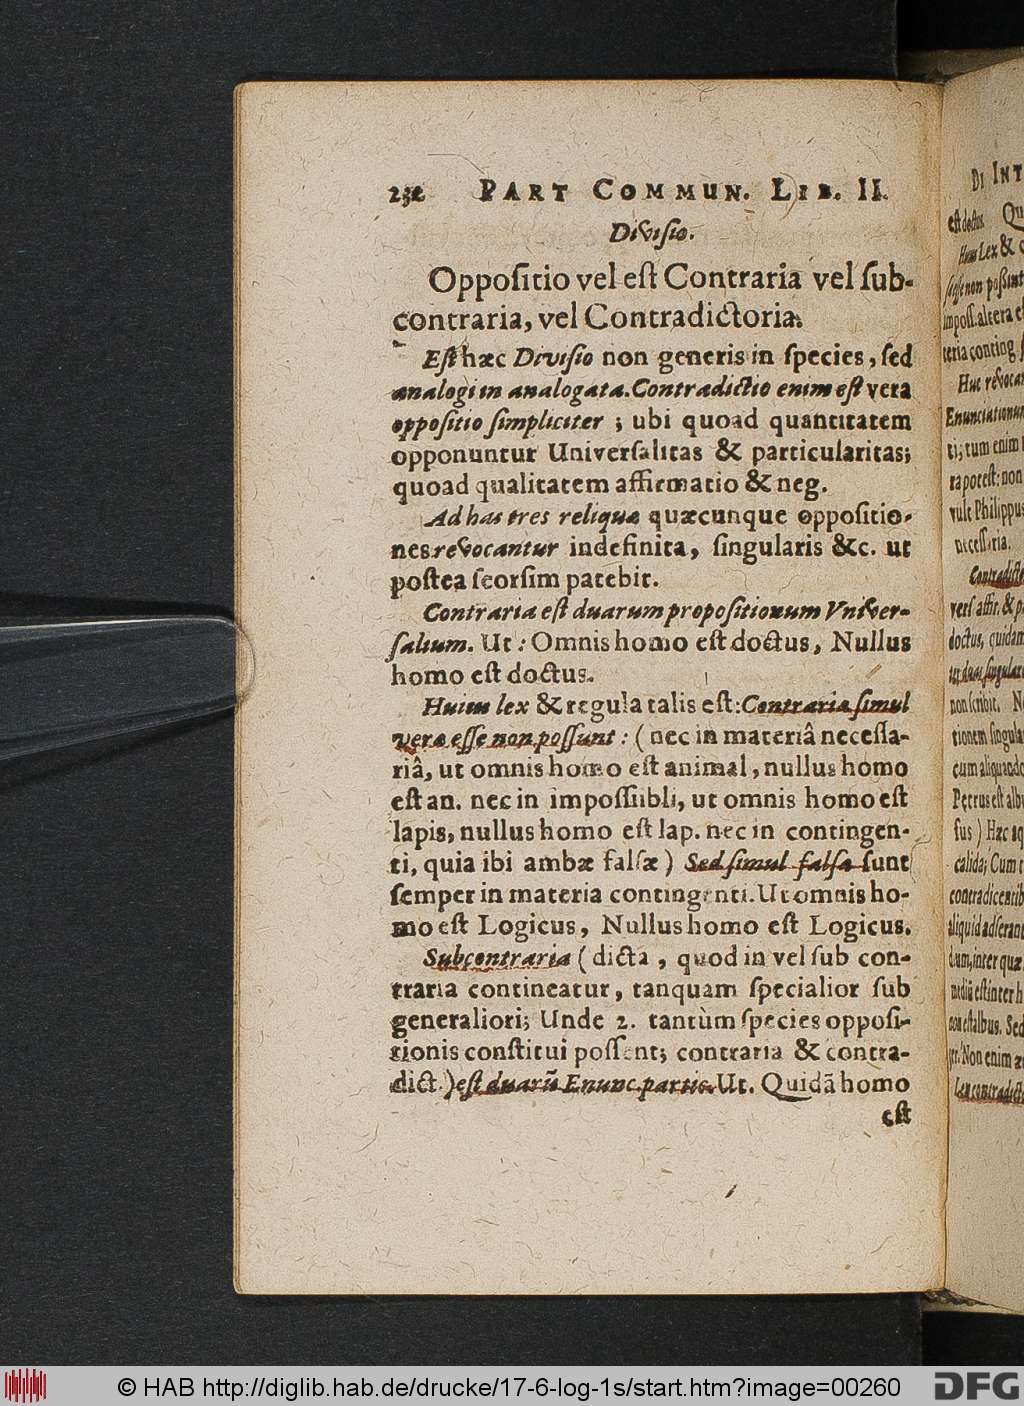 232 PART COMMUN. LIB. II.
Divisio.
Oppositio vel est Contraria vel sub-
contraria, vel Contradictoria.
Est hæc Divisio non generis in species, sed
analogi in analogata. Contradictio enim est vera
oppositio simpliciter; ubi quoad quantitatem
opponuntur Universalitas & particularitas;
quoad qualitatem affirmatio & neg.
Ad has tres reliquæ quæcunque oppositio-
nes revocantur indefinita, singularis &c. ut
postea seorsim patebit.
Contraria est duarum propositionum Vniver-
salium. Ut: Omnis homo est doctus, Nullus
homo est doctus.
Huius lex & regula talis est: Contraria simul
veræ esse non possunt: (nec in materiâ necessa-
riâ, ut omnis homo est animal, nullus homo
est an. nec in impossiibli, ut omnis homo est
lapis, nullus homo est lap. nec in contingen-
ti, quia ibi ambæ falsæ) Sed simul falsæ sunt
semper in materia contingenti. Ut omnis ho-
mo est Logicus, Nullus homo est Logicus.
Subcontraria (dicta, quod in vel sub con-
traria contineatur, tanquam specialior sub
generaliori; Unde 2. tantùm species opposi-
tionis constitui possent; contraria & contra-
dict.) est duarū Enunc. partic. Ut. Quidā homo
est
DE INT
est doctus. Qu
Huius Lex &
se esse non possint
imposs. altera
teria conting.
Huc revoca
Enunciationum
ti; tum enim
ra potest: non
vult Philippus
necessaria.
Contradict
vers. affir. & p
doctus, quidam
ter duas singular
non scribit. N
tionem singula
cum aliquando
Petrus est alb
sus) Hæc aq
calida; Cum
contradicentib
aliquid adseran
dum, inter quæ
medio est inter h
non est albus. Sed
ger. Non enim
Lex contradict
© HAB http://diglib.hab.de/drucke/17-6-log-1s/start.htm?image=00260
DFG